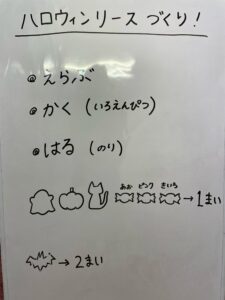 ハロウィンリースづくり！
◎えらぶ
◎かく（いろえんぴつ）
◎はる（のり）
あお ピンク きいろ
→1まい
→2まい